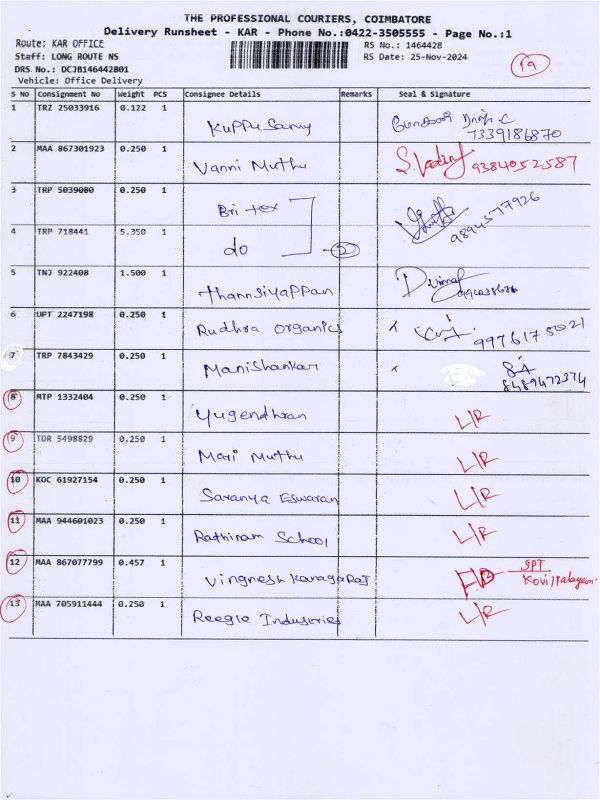 THE PROFESSIONAL COURIERS, COIMBATORE
Delivery Runsheet - KAR - Phone No.:0422-3505555 - Page No.:1
Route: KAR OFFICE RS No.: 1464428
Staff: LONG ROUTE NS RS Date: 25-Nov-2024
DRS No.: DCJB146442801
Vehicle: Office Delivery
S No Consignment No Weight PCS Consignee Details Remarks Seal & Signature
1 TRZ 25033916 0.122 1 Kuppusamy 7339186870
2 MAA 867301923 0.250 1 Vanni Muthu 9384052587
3 TRP 5039080 0.250 1 Bri tex 9894577926
4 TRP 718441 5.350 1 do 2
5 TNJ 922408 1.500 1 thannsiyappan
6 UPT 2247198 0.250 1 Rudhra organics x 9976175021
7 TRP 7843429 0.250 1 Manishankar x 8489472374
8 MTP 1332404 0.250 1 Yugendhran L/R
9 TOR 5498829 0.250 1 Mari Muthu L/R
10 KOC 61927154 0.250 1 Saranya Eswaran L/R
11 MAA 944601023 0.250 1 Rathinam School L/R
12 MAA 867077799 0.457 1 Vingnesh Kanagaraj
13 MAA 705911444 0.250 1 Reegle Industries L/R